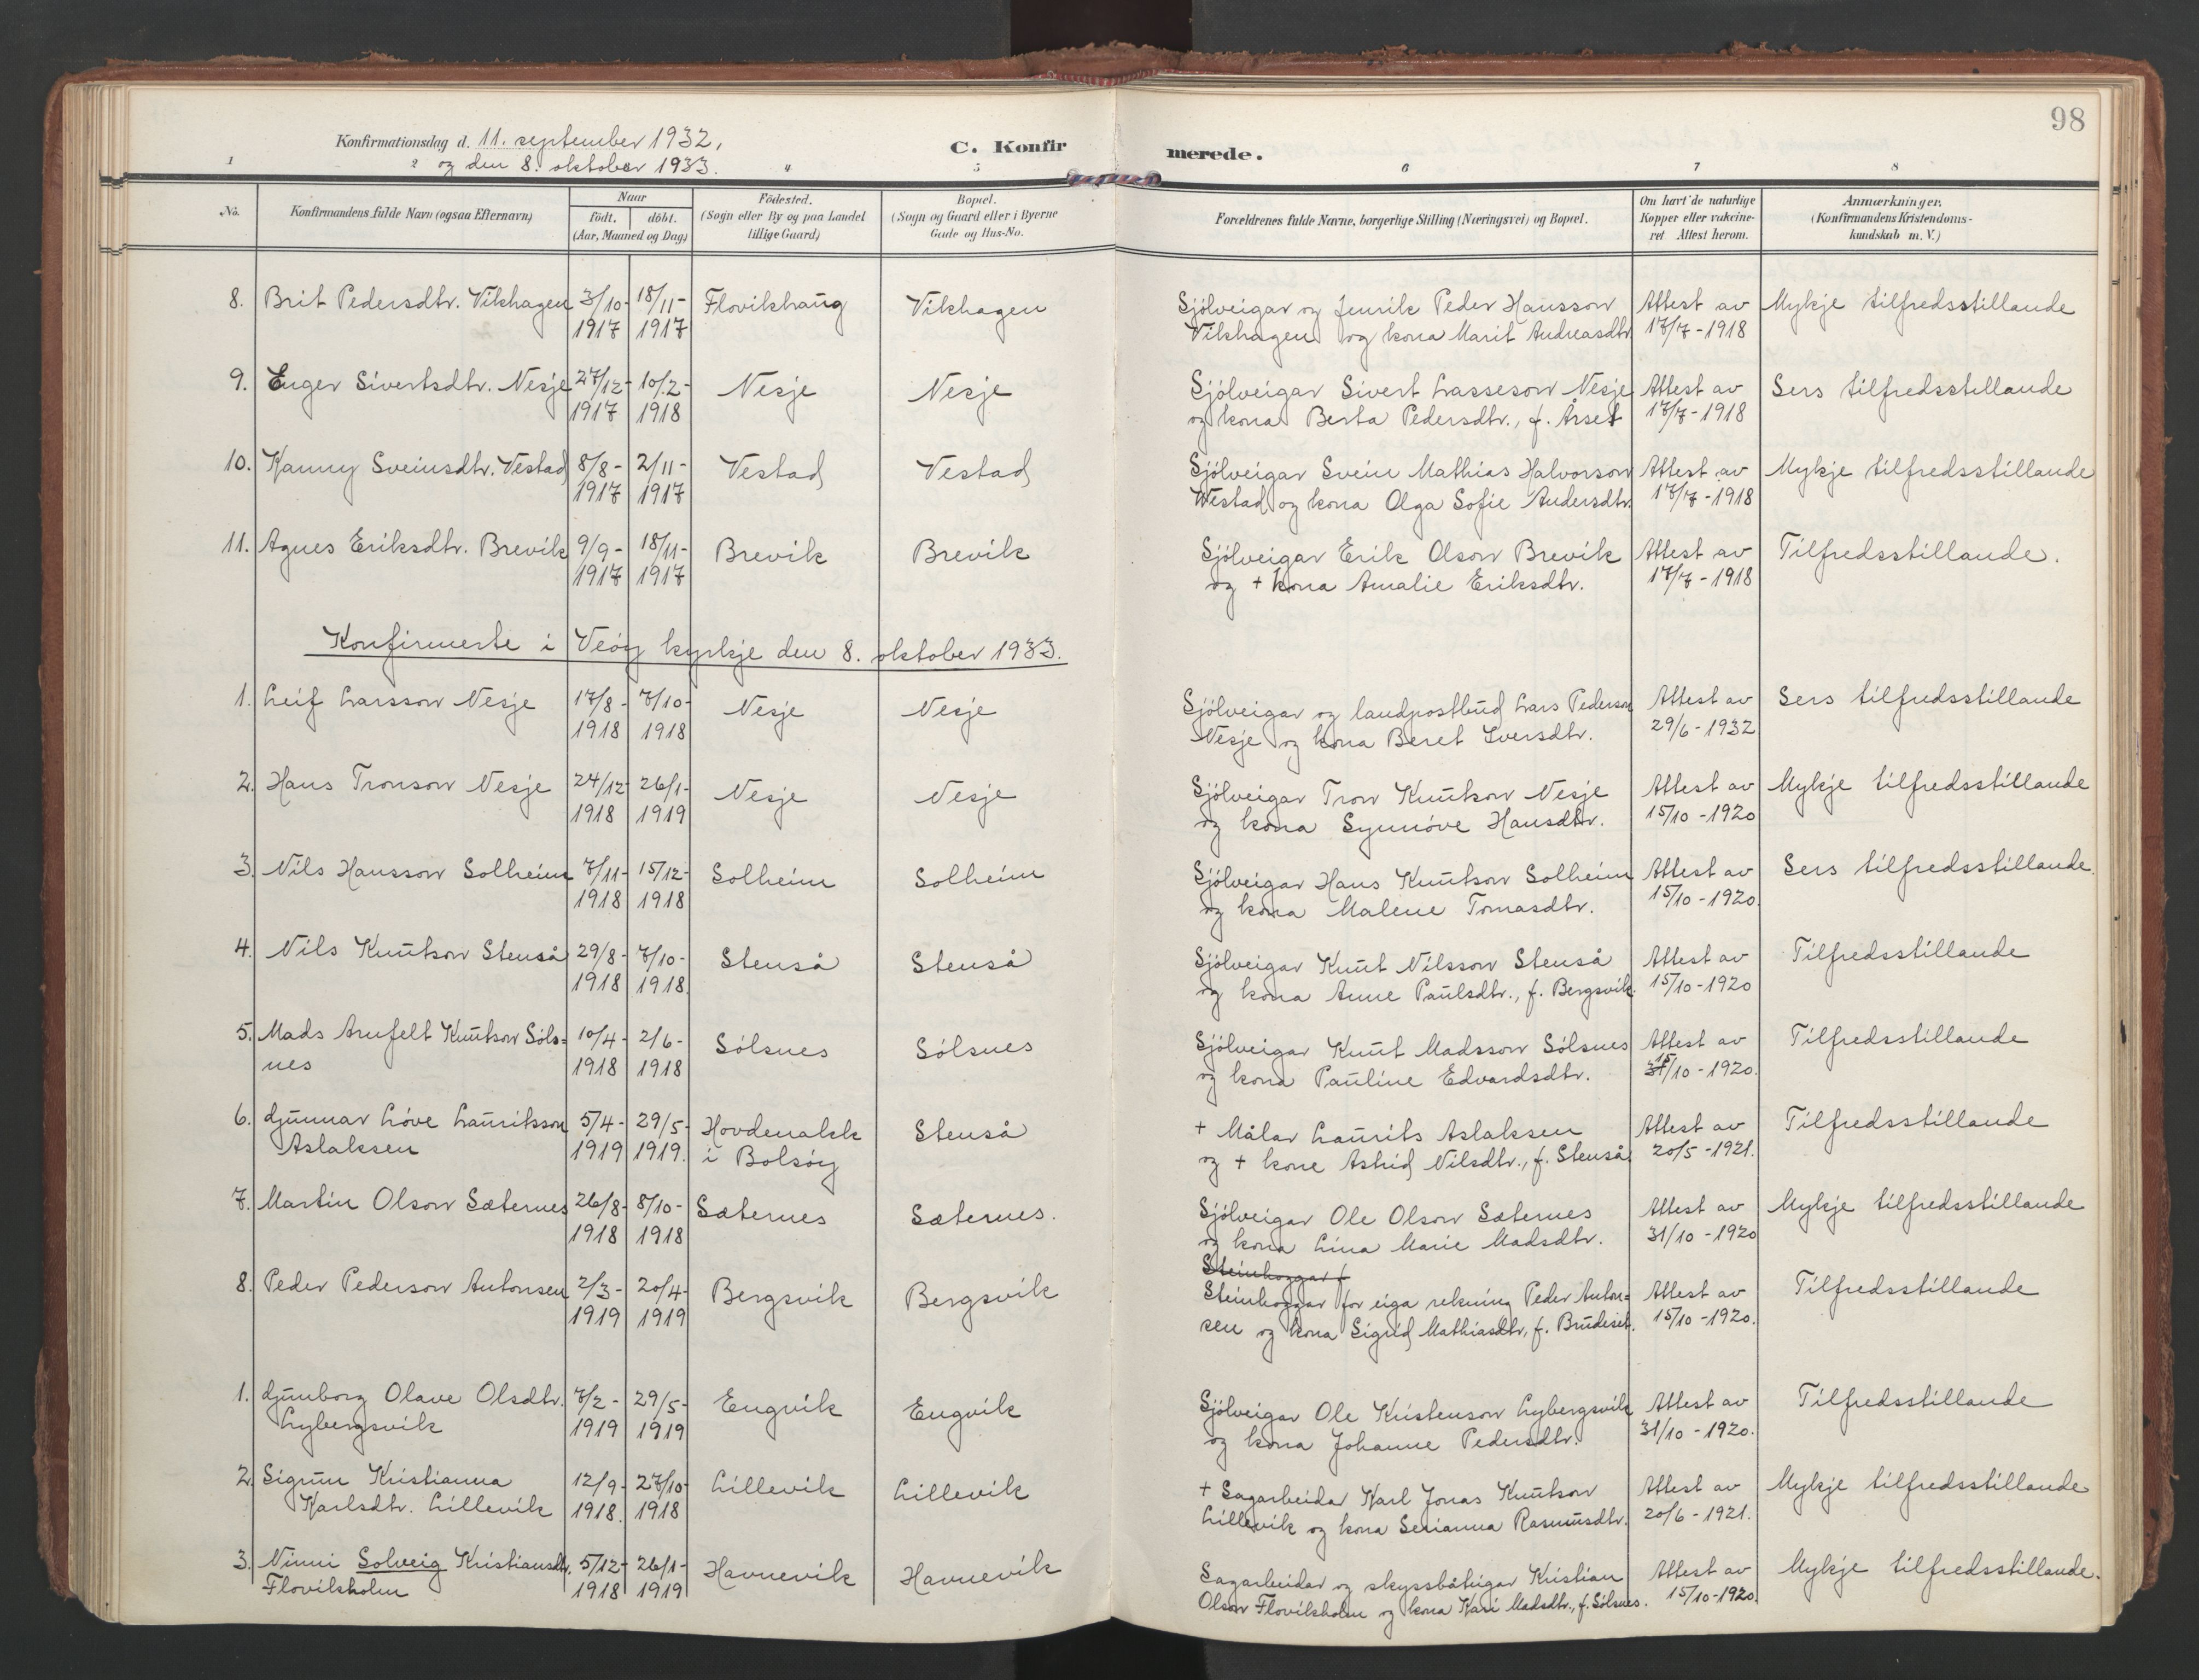 98
Konfirmationsdag d. 11. september 1932,
og den 8. oktober 1933.
C. Konfirmerede.
1 2 4 5 6 7 8
No. Konfirmandens fulde Navn (ogsaa Efternavn) Naar födt. döbt. (Aar, Maaned og Dag) Födested. (Sogn eller By og paa Landet tillige Gaard) Bopæl. (Sogn og Gaard eller i Byerne Gade og Hus-No. Forældrenes fulde Navne, borgerlige Stilling (Næringsvei) og Bopæl. Om havt de naturlige Kopper eller vakcineret Attest herom. Anmærkninger. (Konfirmandens Kristendomskundskab m. V.)
8. Brit Pedersdtr. Vikhagen 3/10- 18/11- Flovikhaug Vikhagen Sjölveigar og Peder Hansson Attest av Mykje tilfredsstillande
1917 1917 Vikhagen og kona Marit Andreasdtr. 17/7-1918
9. Enger Sivertsdtr. Nesje 27/12- 10/2- Nesje Nesje Sjölveigar Sivert Lasseson Nesje Attest av Sers tilfredsstillande
1917 1918 og kona Berta Pedersdtr., f. Årset 17/7-1918
10. Kanny Sveinsdtr. Vestad 8/8- 2/11- Vestad Vestad Sjölveigar Svein Mathias Halvorson Attest av Mykje tilfredsstillande
1917 1917 Vestad og kona Olga Sofie Andersdtr. 17/7-1918
11. Agnes Eriksdtr. Brevik 9/9- 18/11- Brevik Brevik Sjölveigar Erik Olson Brevik Attest av Tilfredsstillande.
1917 1917 og + kona Amalie Eriksdtr. 17/7-1918
Konfirmerte i Veöy kyrkje den 8. oktober 1933.
1. Leif Larsson Nesje 17/8- 7/10- Nesje Nesje Sjölveigar og landpostbud Lars Pederson Attest av Sers tilfredsstillande
1918 1918 Nesje og kona Beret Iversdtr. 29/6-1932
2. Hans Tronson Nesje 24/12- 26/1- Nesje Nesje Sjölveigar Tron Knutson Nesje Attest av Mykje tilfredsstillande
1918 1919 og kona Synnöve Hansdtr. 15/10-1920
3. Nils Hansson Solheim 7/11- 15/12- Solheim Solheim Sjölveigar Hans Knutson Solheim Attest av Sers tilfredsstillande.
1918 1918 og kona Malene Tomasdtr. 15/10-1920.
4. Nils Knutson Stenså 29/8- 7/10- Stenså Stenså Sjölveigar Knut Nilsson Stenså Attest av Tilfredsstillande
1918 1918. og kona Anne Paulsdtr., f. Bergsvik. 15/10-1920
5. Mads Arnfelt Knutson Söls= 10/4- 2/6- Sölsnes Sölsnes Sjölveigar Knut Madsson Sölsnes Attest av Tilfredsstillande
nes 1918 1918 og kona Pauline Edvardsdtr. 15/10-1920.
6. Gunnar Löve Lauritsson 5/4- 29/5- Hovdenakk Stenså + Målar Laurits Aslaksen Attest av Tilfredsstillande
Aslaksen 1919 1919. i Bolsöy og + kone Astrid Nilsdtr., f. Stenså. 20/5-1921.
7. Martin Olson Sæternes 26/8- 8/10- Sæternes Sæternes. Sjölveigar Ole Olson Sæternes Attest av Mykje tilfredsstillande
1918 1918 og kona Lina Marie Madsdtr. 31/10-1920
Steinhoggar f
8. Peder Pederson Antonsen 2/3- 20/4- Bergsvik Bergsvik Steinhoggar for eiga rekning Peder Anton= Attest av Tilfredsstillande
1919 1919 sen og kona Sigrid Mathiasdtr, f. Brudeset. 15/10-1920.
1. Gunborg Olave Olsdtr. 7/2- 29/5- Engvik Engvik Sjölveigar Ole Kristenson Lybergsvik Attest av Tilfredsstillande
Lybergsvik 1919 1919 og kona Johanne Pedersdtr. 31/10-1920.
2. Sigrun Kristianna 12/9- 27/10- Lillevik Lillevik + Sagarbeidar Karl Jonas Knutson Attest av Mykje tilfredsstillande
Karlsdtr. Lillevik 1918. 1918 Lillevik og kona Serianna Rasmusdtr. 20/6-1921.
3. Ninni Solveig Kristiansdtr. 5/12- 26/1- Havnevik Havnevik Sagarbeidar og skyssbåteigar Kristian Attest av Mykje tilfredsstillande.
Flovikholm 1918 1919 Olson Flovikholm og kona Kari Madsdtr., f. Sölsnes. 15/10-1920.